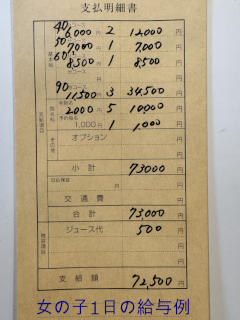 支払明細書
40 コース 6,000 円 2 12,000 円
50 コース 7000 円 1 7,000 円
60 コース 8,500 円 1 8,500 円
コース 円 円
90 コース 11,500 円 3 34,500 円
2000 円 5 10,000 円
予約指名 1,000円 1 1,000 円
オプション 円
小計 73000 円
日払保証 円 円
交通費 円
合計 73,000 円
ジュース代 500 円
円
円
支給額 72,500 円
女の子1日の給与例